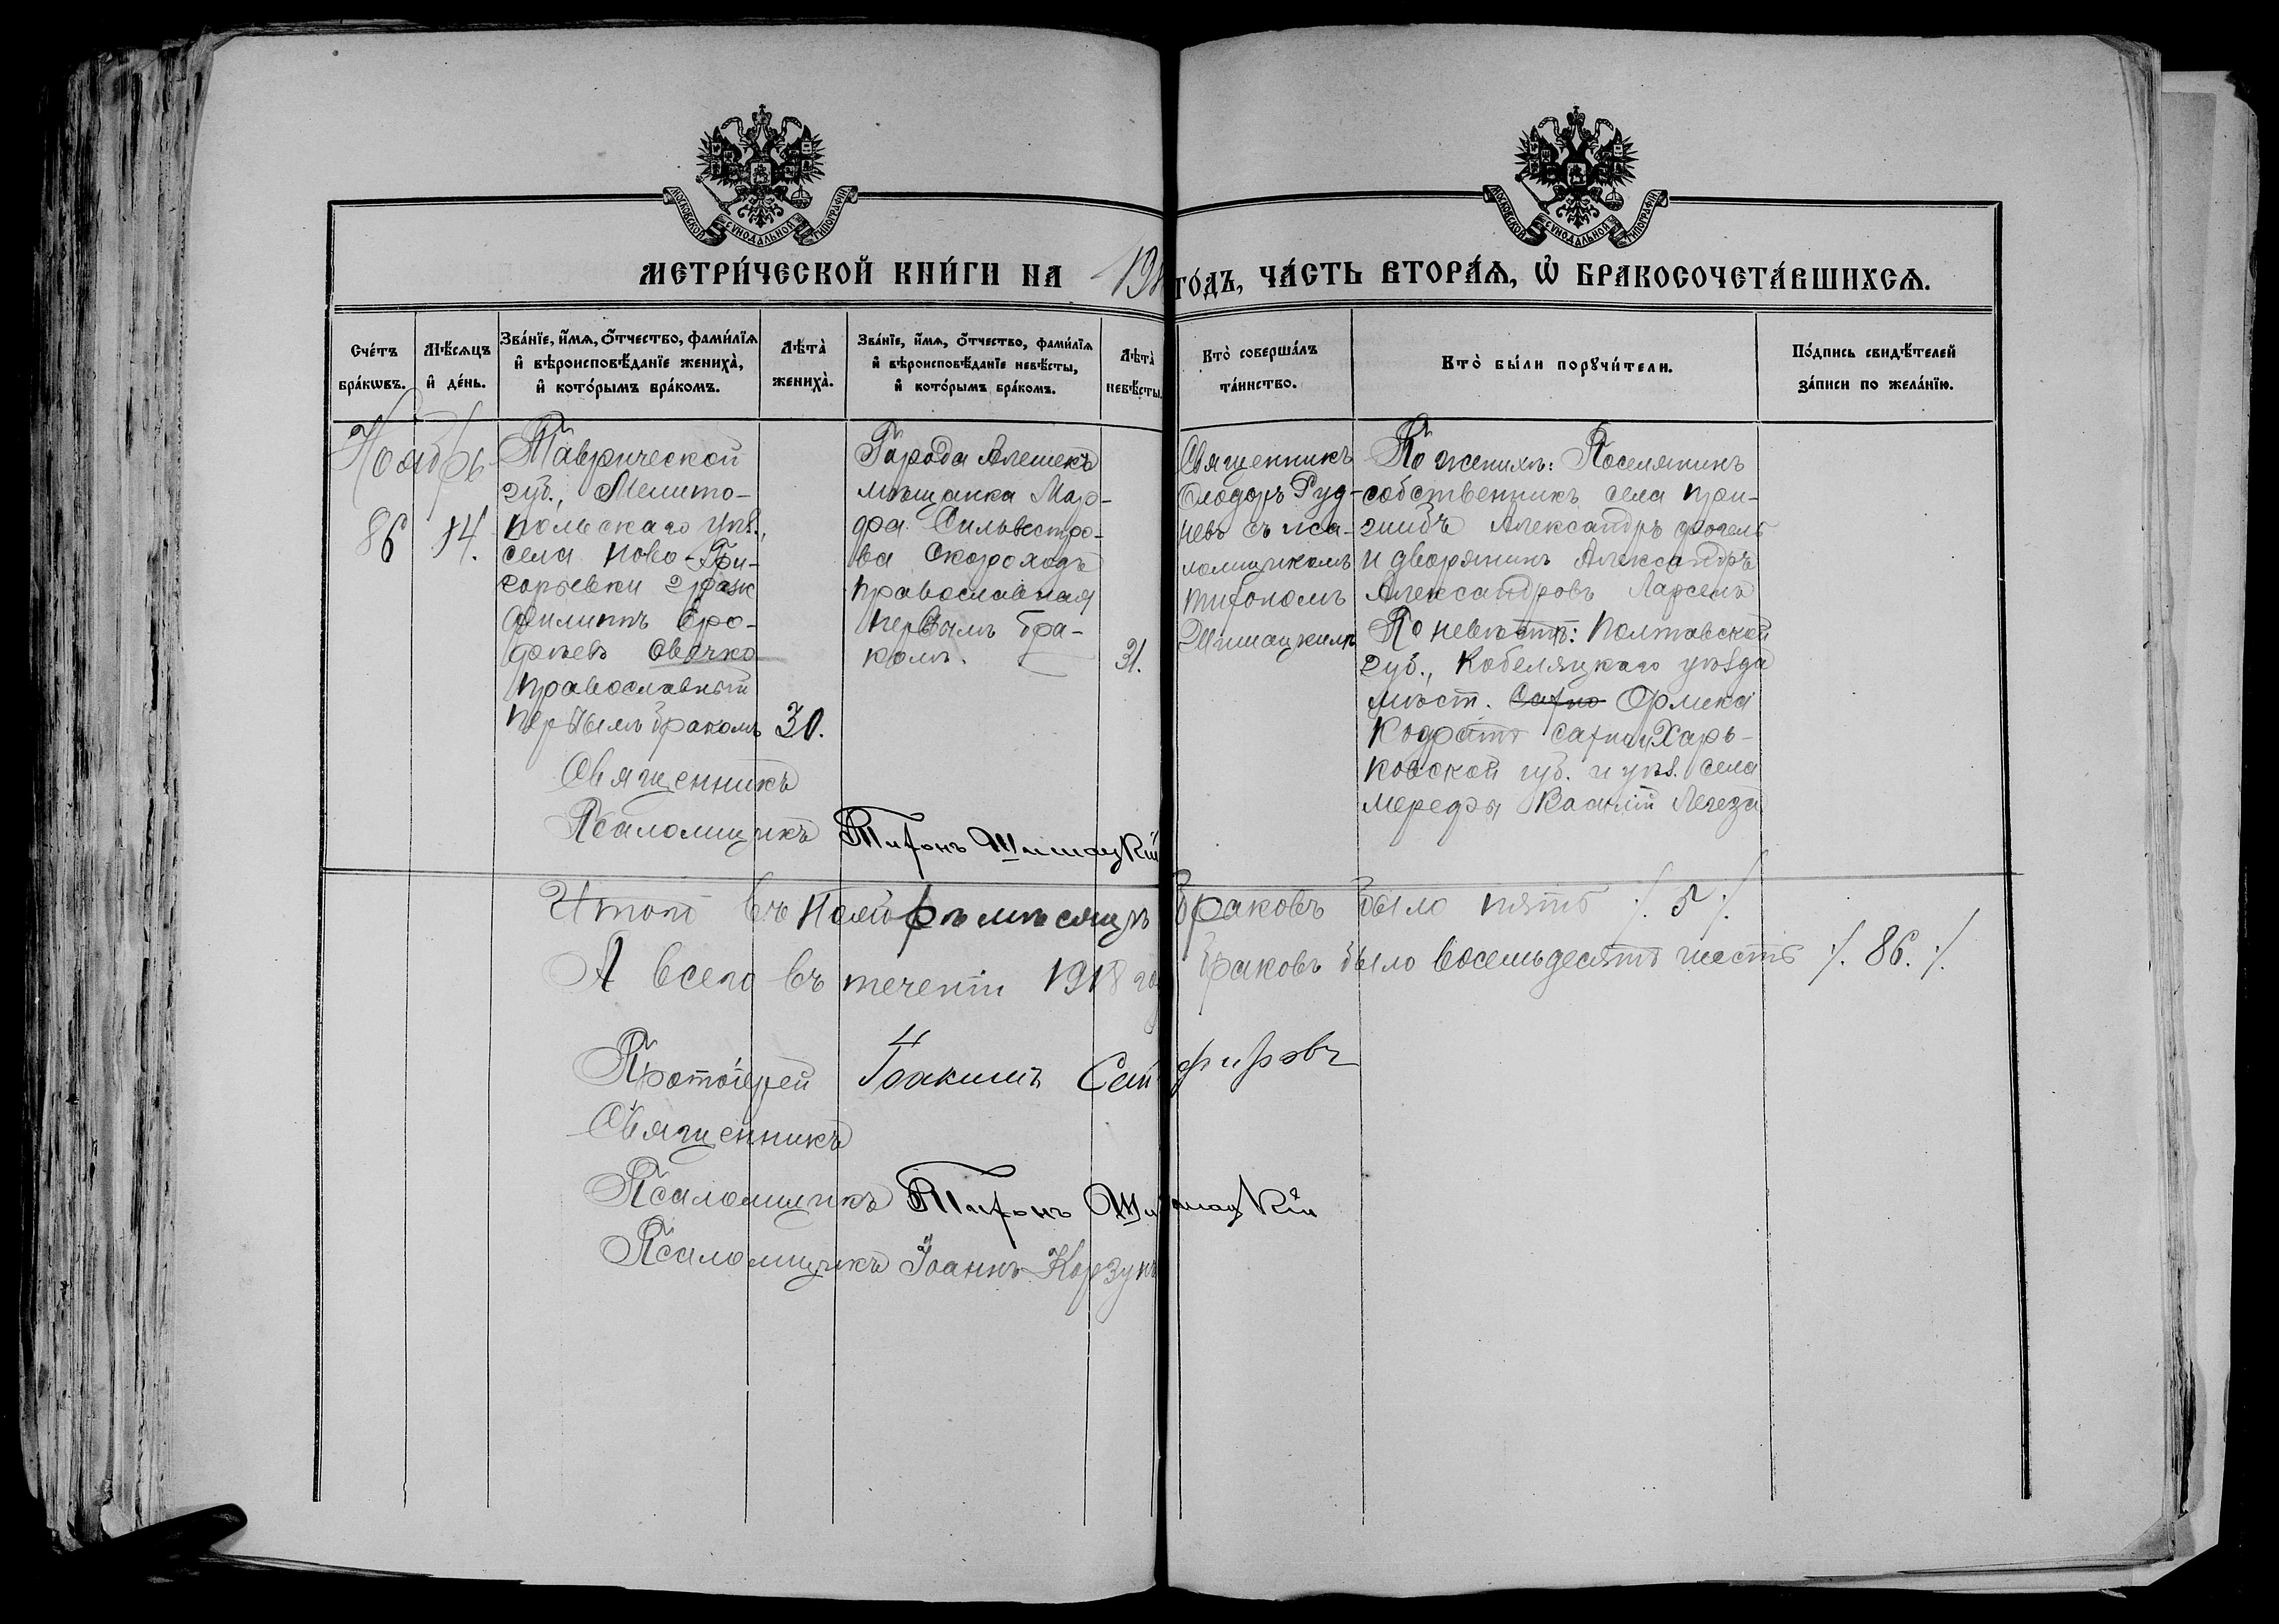 МОСКОВСКОЙ СѴНОДАЛЬНОЙ ТИПОГРАФІИ
МОСКОВСКОЙ СѴНОДАЛЬНОЙ ТИПОГРАФІИ
МЕТРИ́ЧЕСКОЙ КНИ́ГИ НА 191
ГО́ДЪ, ЧА́СТЬ ВТОРА́Ѧ, Ѡ҆ БРАКОСОЧЕТА́ВШИХСѦ.
Сче́тъ бра́кѡвъ.
Мѣ́сѧцъ и҆ де́нь.
Зва́нїе, и҆́мѧ, ѻ҆́тчество, фами́лїѧ
и҆ вѣроисповѣ́данїе женихà,
и҆ кото́рымъ бра́комъ.
Лѣтà женихà.
Зва́нїе, и҆́мѧ, ѻ҆́тчество, фами́лїѧ
и҆ вѣроисповѣ́данїе невѣ́сты,
и҆ кото́рымъ бра́комъ.
Лѣтà невѣ́сты.
Ктò соверша́лъ та́инство.
Ктò бы́ли порꙋчи́тели.
По́дпись свидѣ́телей
за́писи по жела́нїю.
Ноябрь
86
14.
Таврической
губ., Мелито-
польскаго уѣз.,
села Ново-Гри-
горьевки граж
Филиппъ Еро-
фѣевъ Овочко
православный
первымъ бракомъ
30.
Города Алешекъ
мѣщанка Мар-
фа Сильвестро-
ва Скороходъ
православная
первымъ бра-
комъ.
31.
Священникъ
Ѳеодоръ Руд-
невъ съ пса-
ломщикомъ
Тихономъ
Шишацкимъ
По женихѣ: Поселянинъ
собственникъ села При-
шибъ Александръ Фогель
и дворянинъ Александръ
Александровъ Ларсенъ
По невѣстѣ: Полтавской
губ., Кобеляцкаго уѣзда
мѣст. Сахно Орлика
Кодратъ Сахно и Харь-
ковской губ. и уѣз. села
Мерефы Василій Легеза
Священникъ
Псаломщикъ Тихонъ Шишацкій
Итого въ Ноябрѣ мѣсяцѣ браковъ было пять ./. 5 ./.
А всего въ теченіи 1918 год браковъ было восемьдесятъ шесть ./. 86. ./.
Протоіерей Іоакимъ
Священникъ
Псаломщикъ Тихонъ Шишацкій
Псаломщикъ Іоаннъ Корзунъ